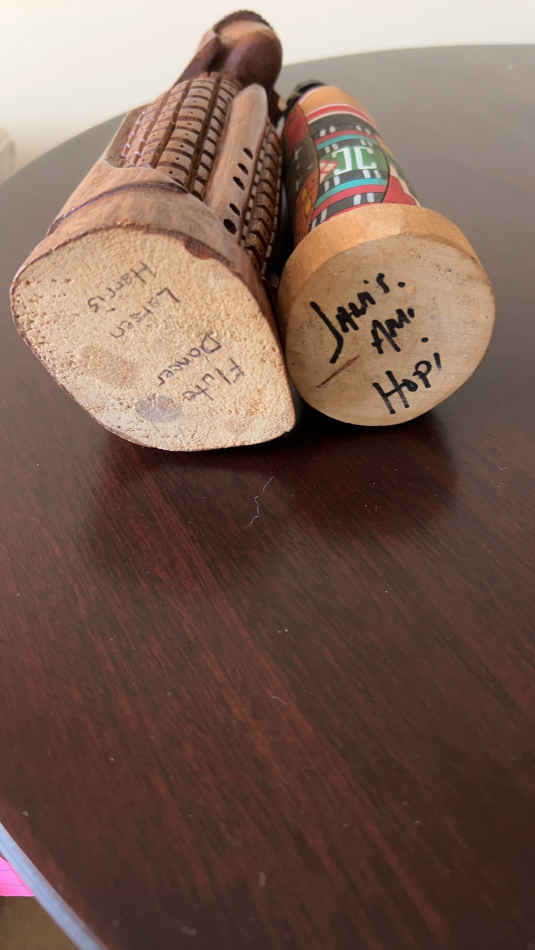 Flute
Dancer
Larsen
Harris
JALM S.
AMI
HOPi